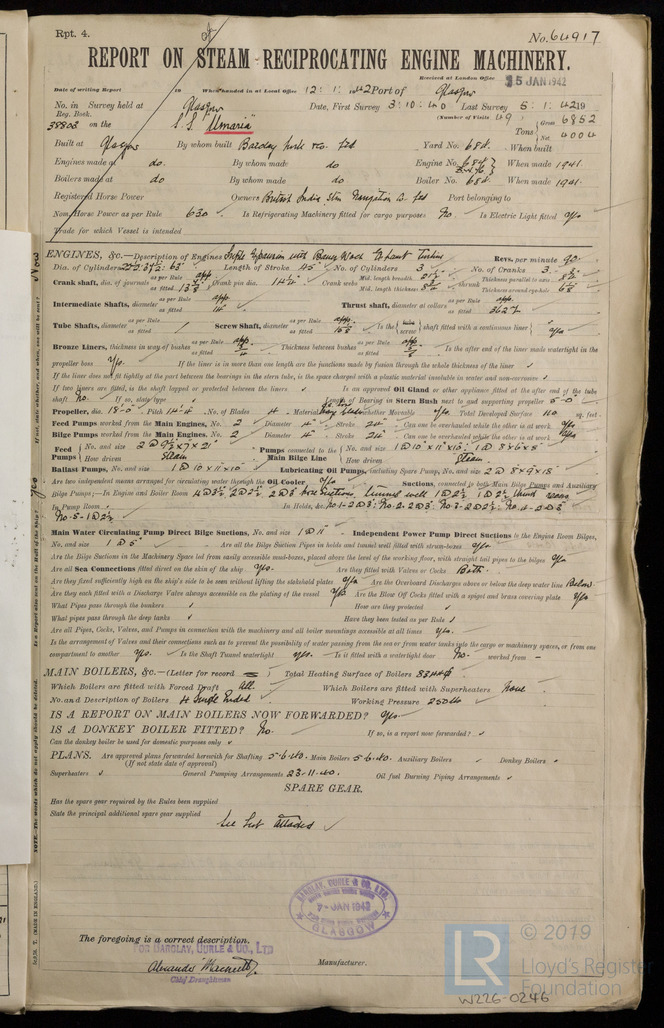 Rpt. 4.
No. 64917
REPORT ON STEAM RECIPROCATING ENGINE MACHINERY.
Received at London Office 15 JAN 1942
Date of writing Report 19 When handed in at Local Office 12. 1. 1942 Port of Glasgow
No. in Reg. Book. Survey held at Glasgow Date, First Survey 3. 10. 40 Last Survey 5. 1. 42 19
38802 on the S.S. "Umaria" (Number of Visits 49
Tons Gross 6852
No. 4004
Built at Glasgow By whom built Barclay Curle & Co. Ltd Yard No. 684 When built
Engines made at do. By whom made do Engine No. 684 When made 1941.
Boilers made at do. By whom made do Boiler No. 684 When made 1941.
Registered Horse Power Owners British India Stm Navigation Co. Ltd Port belonging to
Nom. Horse Power as per Rule 630 Is Refrigerating Machinery fitted for cargo purposes No. Is Electric Light fitted Yes
Trade for which Vessel is intended
ENGINES, &c.—Description of Engines Triple Expansion with Bauer Wach Exhaust Turbine Revs. per minute 90
Dia. of Cylinders Length of Stroke 45" No. of Cylinders 3 No. of Cranks 3.
Crank shaft, dia. of journals as per Rule app. as fitted Crank pin dia. 14¼" Crank webs Mid. length breadth Mid. length thickness shrunk Thickness parallel to axis Thickness around eye-hole
Intermediate Shafts, diameter as per Rule app. as fitted Thrust shaft, diameter at collars as per Rule app. as fitted
Tube Shafts, diameter as per Rule as fitted Screw Shaft, diameter as per Rule app. as fitted Is the tube screw shaft fitted with a continuous liner Yes
Bronze Liners, thickness in way of bushes as per Rule app. as fitted Thickness between bushes as per Rule app. as fitted Is the after end of the liner made watertight in the
propeller boss Yes. If the liner is in more than one length are the junctions made by fusion through the whole thickness of the liner ✓
If the liner does not fit tightly at the part between the bearings in the stern tube, is the space charged with a plastic material insoluble in water and non-corrosive ✓
If two liners are fitted, is the shaft lapped or protected between the liners ✓ Is an approved Oil Gland or other appliance fitted at the after end of the tube
shaft No. If so, state type ✓ Length of Bearing in Stern Bush next to and supporting propeller 5'-0"
Propeller, dia. 18'-0" Pitch No. of Blades 4 Material whether Moveable Yes Total Developed Surface 110 sq. feet
Feed Pumps worked from the Main Engines, No. 2 Diameter 4" Stroke 24" Can one be overhauled while the other is at work Yes
Bilge Pumps worked from the Main Engines, No. 2 Diameter 4" Stroke 24" Can one be overhauled while the other is at work Yes
Feed Pumps No. and size How driven Steam Pumps connected to the Main Bilge Line No. and size 1 @ 10" x 11" x 10" : 1 @ 8 x 6 x 8" How driven Steam
Ballast Pumps, No. and size 1 @ 10" x 11" x 10" Lubricating Oil Pumps, including Spare Pump, No. and size 2 @ 8 x 9 x 18
Are two independent means arranged for circulating water through the Oil Cooler Yes Suctions, connected to both Main Bilge Pumps and Auxiliary
Bilge Pumps;—In Engine and Boiler Room Tunnel well 1 @ 2½
In Pump Room In Holds, &c. No. 1-2 @ 3": No. 2-2 @ 3": No. 3-2 @ 2½": No. 4-2 @ 3"
No. 5-1 @ 2½
Main Water Circulating Pump Direct Bilge Suctions, No. and size 1 @ 11" Independent Power Pump Direct Suctions to the Engine Room Bilges,
No. and size 1 @ 5" Are all the Bilge Suction Pipes in holds and tunnel well fitted with strum-boxes Yes
Are the Bilge Suctions in the Machinery Space led from easily accessible mud-boxes, placed above the level of the working floor, with straight tail pipes to the bilges Yes
Are all Sea Connections fitted direct on the skin of the ship Yes. Are they fitted with Valves or Cocks Both.
Are they fixed sufficiently high on the ship's side to be seen without lifting the stokehold plates Yes Are the Overboard Discharges above or below the deep water line Below
Are they each fitted with a Discharge Valve always accessible on the plating of the vessel Yes Are the Blow Off Cocks fitted with a spigot and brass covering plate Yes
What Pipes pass through the bunkers ✓ How are they protected ✓
What pipes pass through the deep tanks ✓ Have they been tested as per Rule ✓
Are all Pipes, Cocks, Valves, and Pumps in connection with the machinery and all boiler mountings accessible at all times Yes.
Is the arrangement of Valves and their connections such as to prevent the possibility of water passing from the sea or from water tanks into the cargo or machinery spaces, or from one
compartment to another Yes. Is the Shaft Tunnel watertight Yes. Is it fitted with a watertight door No. worked from —
MAIN BOILERS, &c.—(Letter for record ) Total Heating Surface of Boilers
Which Boilers are fitted with Forced Draft All. Which Boilers are fitted with Superheaters None
No. and Description of Boilers 4 Single Ended Working Pressure 250 lb
IS A REPORT ON MAIN BOILERS NOW FORWARDED? Yes
IS A DONKEY BOILER FITTED? No. If so, is a report now forwarded? ✓
Can the donkey boiler be used for domestic purposes only ✓
PLANS. Are approved plans forwarded herewith for Shafting 5-6-40. Main Boilers 5-6-40. Auxiliary Boilers ✓ Donkey Boilers ✓
(If not state date of approval)
Superheaters ✓ General Pumping Arrangements 23-11-40. Oil fuel Burning Piping Arrangements ✓
SPARE GEAR.
Has the spare gear required by the Rules been supplied
State the principal additional spare gear supplied
See List attached ✓
BARCLAY, CURLE & CO. LTD.
9- JAN 1942
GLASGOW
The foregoing is a correct description.
FOR BARCLAY, CURLE & CO., LTD
Manufacturer.
Chief Draughtsman
© 2019
LR
Lloyd's Register
Foundation
W226-0246